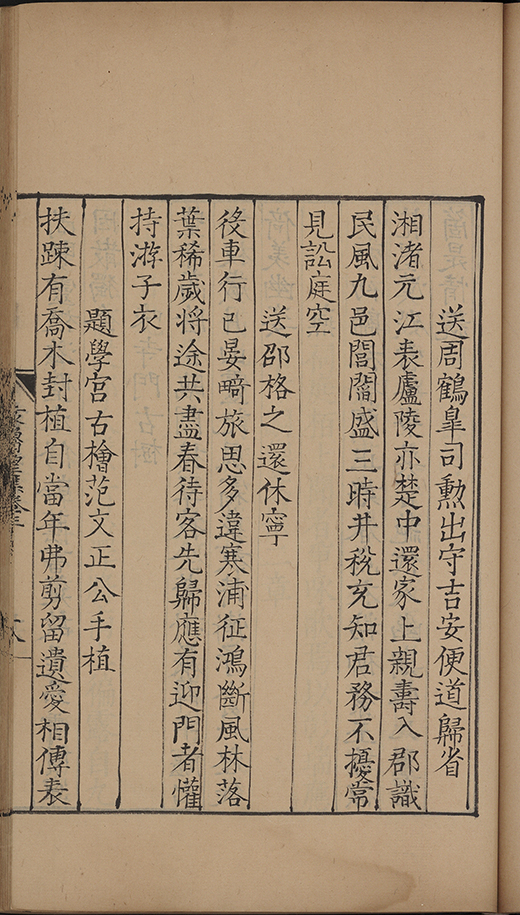 送周鶴皐司勳出守吉安便道歸省
湘渚元江表廬陵亦楚中還家上親壽入郡識
民風九邑閭閻盛三時井稅充知君務不擾常
見訟庭空
送邵格之還休寧
役車行已晏畸旅思多違寒浦征鴻斷風林落
葉稀歲将途共盡春待客先歸應有迎門者懽
持游子衣
題學宮古檜范文正公手植
扶踈有喬木封植自當年弗剪留遺愛相傳表